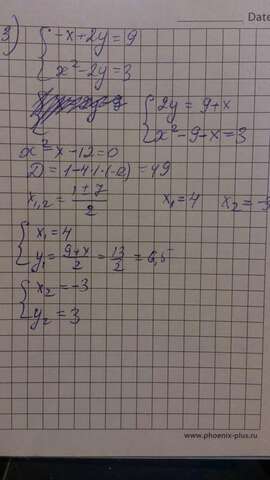 Date
3) { -x + 2y = 9
x² - 2y = 3
{ 2y = 9 + x
x² - 9 - x = 3
x² - x - 12 = 0
D = 1 - 4·1·(-12) = 49
x₁,₂ = (1 ± 7)/2   x₁ = 4   x₂ = -3
{ x₁ = 4
y₁ = (9 + x)/2 = 13/2 = 6,5
{ x₂ = -3
y₂ = 3
www.phoenix-plus.ru